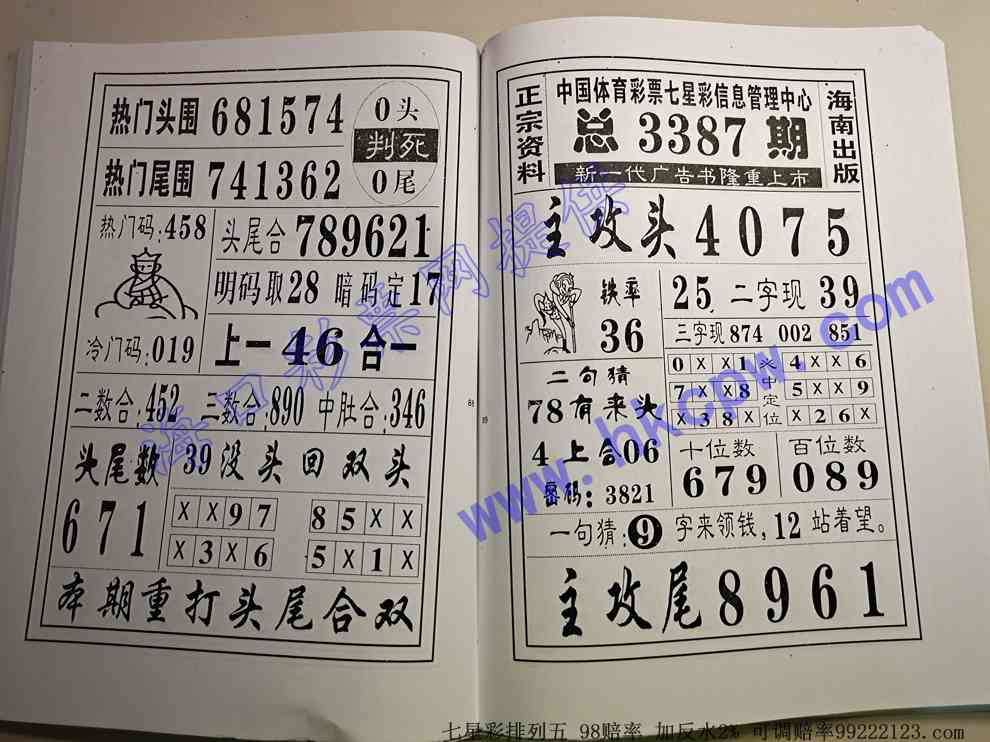 热门头围 681574
0头
判死
0尾
热门尾围 741362
热门码:458
头尾合 789621
明码取28 暗码定17
冷门码:019
上一 46 合一
二数合:452 三数合:890 中肚合:346
头尾数
671
39没头回双头
X X 9 7
8 5 X X
X 3 X 6
5 X 1 X
本期重打头尾合双
88
正宗资料
中国体育彩票七星彩信息管理中心
总 3387 期
新一代广告书隆重上市
海南出版
主攻头 4075
铁率
36
25 二字现 39
三字现 874 002 851
0 X X 1
7 X X 8
X 3 8 X
米中定位
4 X X 6
5 X X 9
X 2 6 X
二句猜
78有来头
4上合06
密码:3821
十位数
679
百位数
089
一句猜:9字来领钱,12站着望。
主攻尾 8961
89
海口彩票网提供
www.hkcpw.com
七星彩排列五 98赔率 加反水2% 可调赔率99222123.com